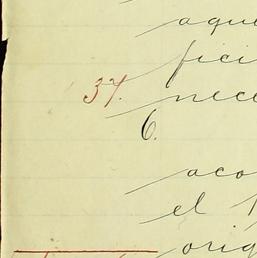 aque
fici
37.
nece
6.
aco
el
orig